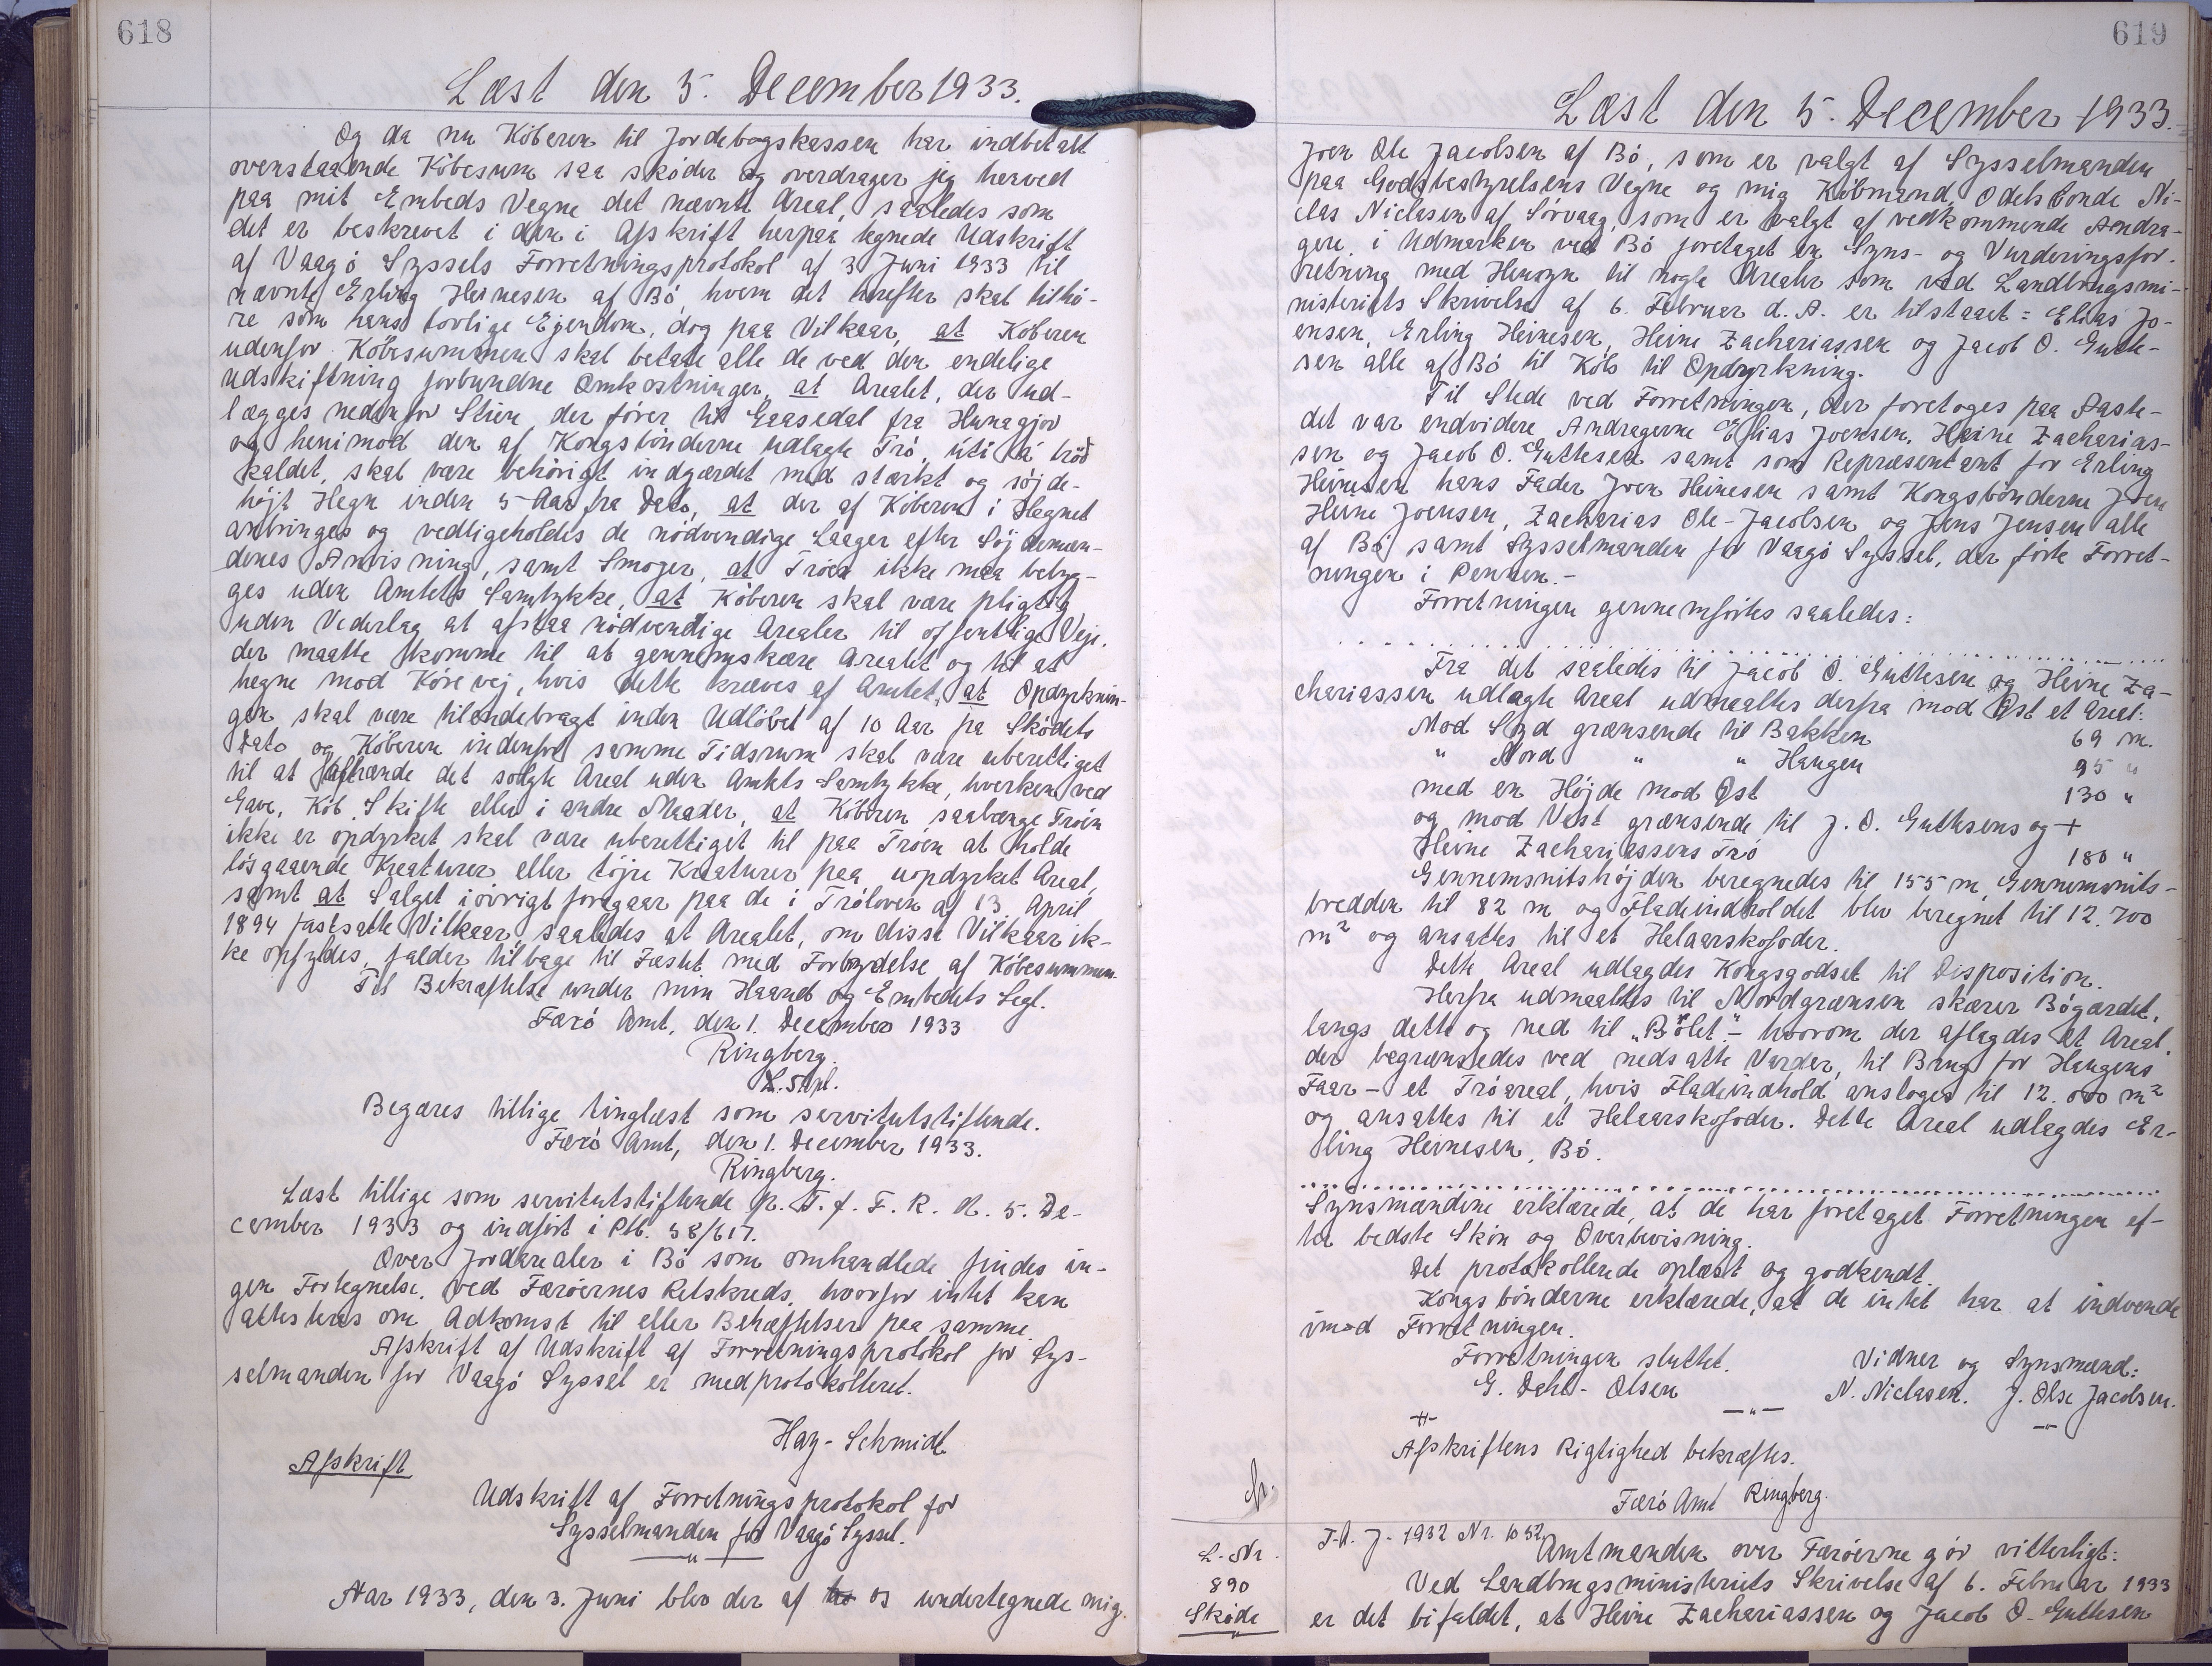 618
Læst den 5. December 1933.
Og da nu Köberen til Jordebogskassen har indbetalt
ovenstaaende Köbesum saa sköder og overdrager jeg herved
paa mit Embeds Vegne det nævnte Areal, saaledes som
det er beskrevet i den i Afskrift herpaa tegnede Udskrift
af Vaagö Syssels Forretningsprotokol af 3 Juni 1933 til
nævnte Erling Heinesen af Bö, hvem det herefter skal tilhö-
re som hans lovlige Ejendom, dog paa Vilkaar, at Köberen
udenfor Köbesummen skal betale alle de ved den endelige
Udskiftning forbundne Omkostninger, at Arealet, der ud-
lægges nedenfor Stien der förer til Gaasedal fra Hunagjov
og henimod den af Kongsbönderne udlagte Trö, úti á tröd
kaldet, skal være behörigt indgærdet med stærkt og söjde-
höjt Hegn inden 5 Aar fra Dato, at der af Köberen i Hegnet
anbringes og vedligeholdes de nödvendige Laager efter Söjdemæn-
denes Anvisning, samt Smoger, at Tröen ikke maa bebyg-
ges uden Amtets Samtykke, at Köberen skal være pligtig
uden Vederlag at afstaa nödvendige Arealer til offentlige Veje,
der maatte komme til at gennemskære Arealet og til at
hegne mod Kørevej, hvis dette kræves af Amtet, at Opdyrknin-
gen skal være tilendebragt inden Udlöbet af 10 Aar fra Skødets
Dato og Köberen indenfor samme Tidsrum skal være uberettiget
til at afhænde det solgte Areal uden Amtets Samtykke, hverken ved
Gave, Köb, Skifte eller i andre Maader, at Köberen saalænge Tröen
ikke er opdyrket skal være uberettiget til paa Tröen at holde
lösgaaende Kreaturer eller töjre Kreaturer paa uopdyrket Areal,
samt at Salget iövrigt foregaar paa de i Tröloven af 13. April
1894 fastsatte Vilkaar, saaledes at Arealet, om disse Vilkaar ik-
ke opfyldes, falder tilbage til Fæstet med Fortydelse af Köbesummen.
Til Bekræftelse under min Haand og Embedets Segl.
Færö Amt, den 1. December 1933
Ringberg.
L. Stpl.
Begæres tillige tinglæst som servitutstiftende.
Færö Amt, den 1. December 1933.
Ringberg.
Læst tillige som servitutstiftende p. T. f. F. R. R. 5. De-
cember 1933 og indfört i Ptb. 38/617.
Over Jordarealer i Bö som omhandlede findes in-
gen Fortegnelse ved Færöernes Retskreds, hvorfor intet kan
attesteres om Adkomst til eller Behæftelser paa samme.
Afskrift af Udskrift af Forretningsprotokol for Sys-
selmanden for Vaagö Syssel er medprotokolleret.
Hay-Schmidt
Afskrift
Udskrift af Forretningsprotokol for
Sysselmanden for Vaagö Syssel.
Aar 1933, den 3. Juni blev der af os undertegnede mig
619
Læst den 5. December 1933.
Joen Ole Jacobsen af Bö, som er valgt af Sysselmanden
paa Godsbestyrelsens Vegne og mig Köbmand, Odelsbonde Ni-
clas Niclasen af Sörvaag, som er valgt af vedkommende Andra-
gere i Udmarken ved Bö foretaget en Syns- og Vurderingsfor-
retning med Hensyn til nogle Arealer som ved Landbrugsmi-
nisteriets Skrivelse af 6. Februar d. A. er tilstaaet: Elias Jo-
ensen, Erling Heinesen, Heine Zachariassen og Jacob O. Guthe-
sen alle af Bö til Köb til Opdyrkning.
Til Stede ved Forretningen, der foretoges paa Aaste-
det var endvidere Andragerne Elias Joensen, Heine Zacharias-
sen og Jacob O. Guthesen samt som Repræsentant for Erling
Heinesen hans Fader Joen Heinesen samt Kongsbönderne Joen
Heine Joensen, Zacharias Ole-Jacobsen og Jens Jensen alle
af Bö samt Sysselmanden for Vaagö Syssel, der förte Forret-
ningen i Pennen.-
Forretningen gennemförtes saaledes:
Fra det saaledes til Jacob O. Guthesen og Heine Za-
chariassen udlagte Areal udmaaltes derfra mod Øst et Areal:
Mod Syd grænsende til Bakken 69 m.
" Nord " " Haugen 95 "
med en Höjde mod Øst 130 "
og mod Vest grænsende til J. O. Guthesens og +
Heine Zachariassens Trö 180 "
Gennemsnitshöjden beregnedes til 155 m, Gennemsnits-
bredden til 82 m og Fladeindholdet blev beregnet til 12.700
m² og ansattes til et Helaarskofoder.
Dette Areal udlagdes Kongsgodset til Disposition.
Herfra udmaaltes til Nordgrænsen skærer Bögærdet,
langs dette og ned til „Bölet" - hvorom der aflagdes et Areal,
der begrænsedes ved nedsatte Varder, til Brug for Haugens
Faar - et Tröareal, hvis Fladeindhold ansloges til 12.000 m²
og ansattes til et Helaarskofoder. Dette Areal udlagdes Er-
ling Heinesen, Bö.
Synsmændene erklærede, at de har foretaget Forretningen ef-
ter bedste Skön og Overbevisning.
Det protokollerede oplæst og godkendt.
Kongsbönderne erklærede, at de intet har at indvende
imod Forretningen.
Forretningen sluttet. Vidner og Synsmænd:
G. Dahl-Olsen N. Niclasen. J. Olse Jacobsen.
Afskriftens Rigtighed bekræftes.
Færö Amt Ringberg.
L. Nr.
890
Sköde
F.A. J. 1932 Nr. 1052
Amtmanden over Færöerne gör vitterligt:
Ved Landbrugsministeriets Skrivelse af 6. Februar 1933
er det bifaldet, at Heine Zachariassen og Jacob O. Guthesen